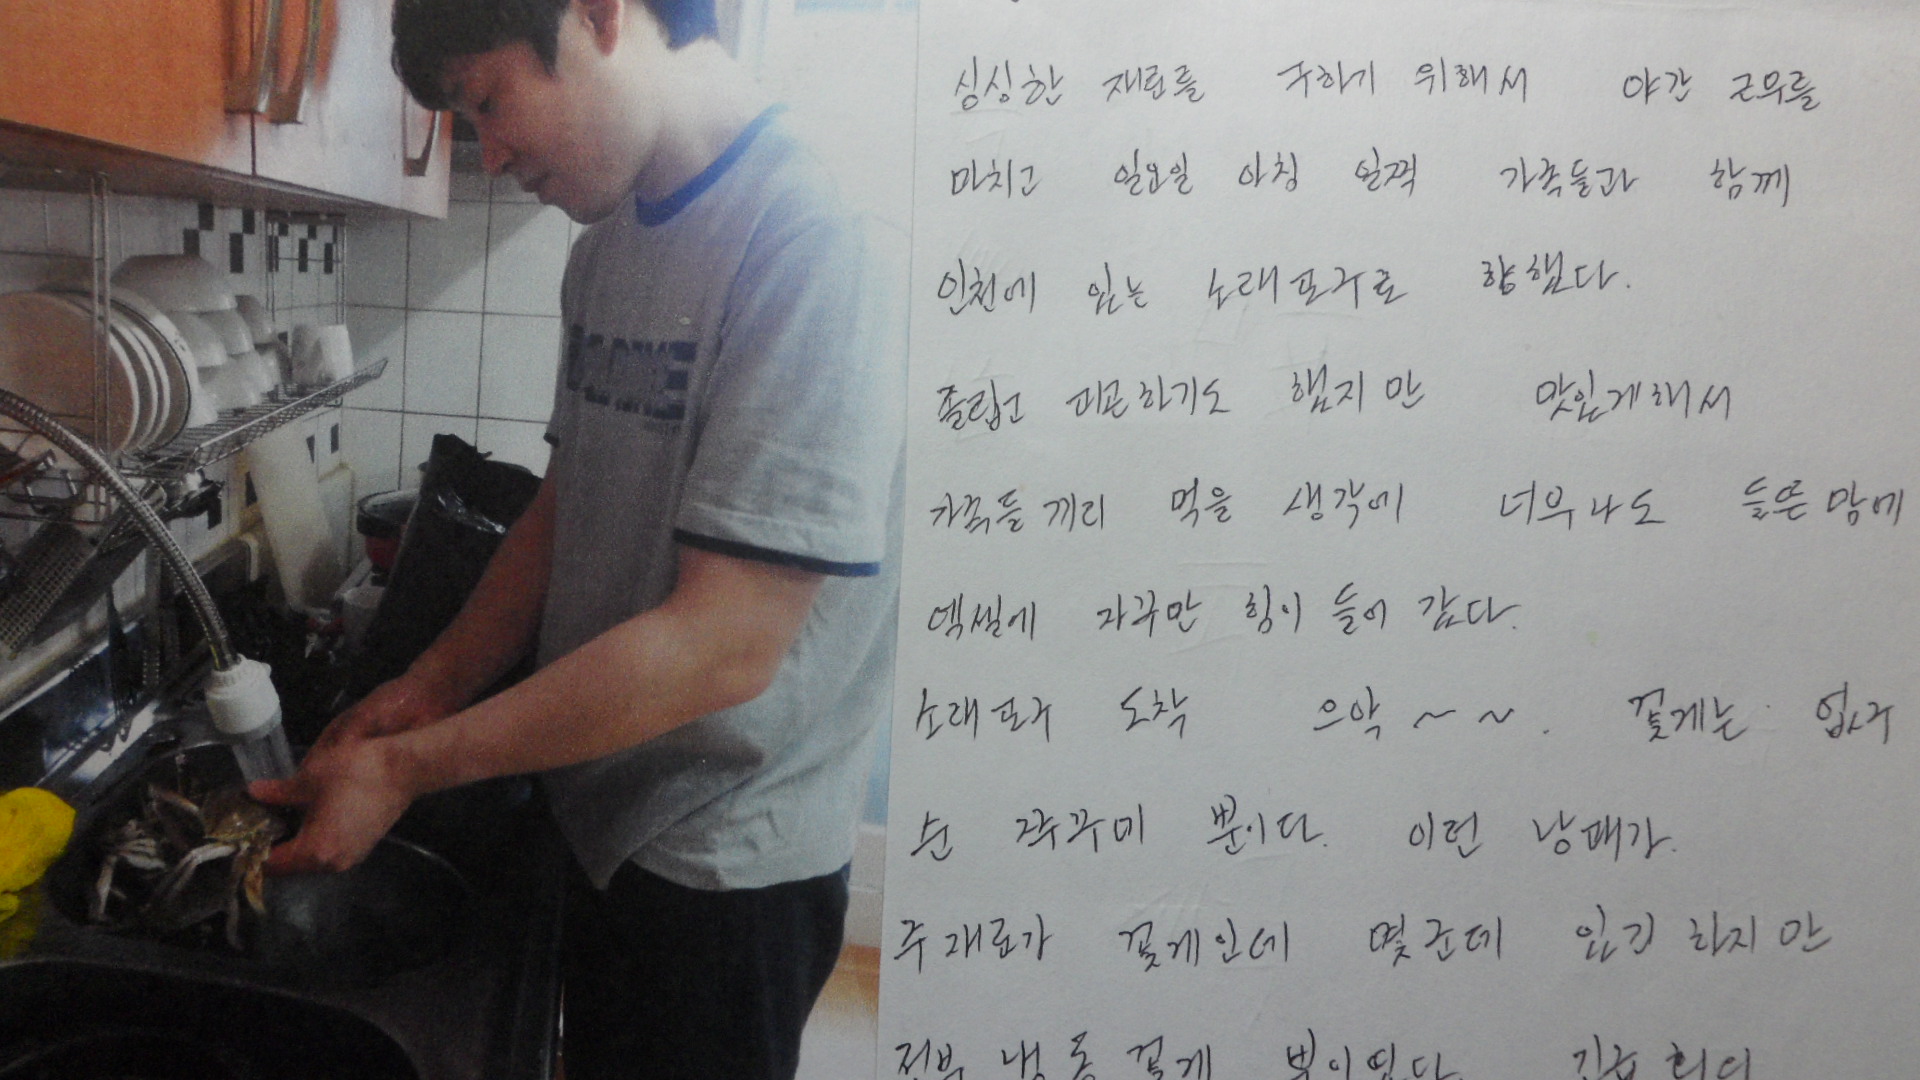 싱싱한 재료를 구하기 위해서 야간 근무를
마치고 일요일 아침 일찍 가족들과 함께
인천에 있는 소래포구로 향했다.
졸립고 피곤하기도 했지만 맛있게해서
가족들끼리 먹을 생각에 너무나도 들뜬맘에
엑셀에 자꾸만 힘이 들어 갔다.
소래포구 도착 으악 ~ ~ . 꽃게는 없구
순 쭈꾸미 뿐이다. 이런 낭패가.
주재료가 꽃게인데 몇군데 있긴 하지만
전부 냉동 꽃게 뿐이었다. 긴급 회의